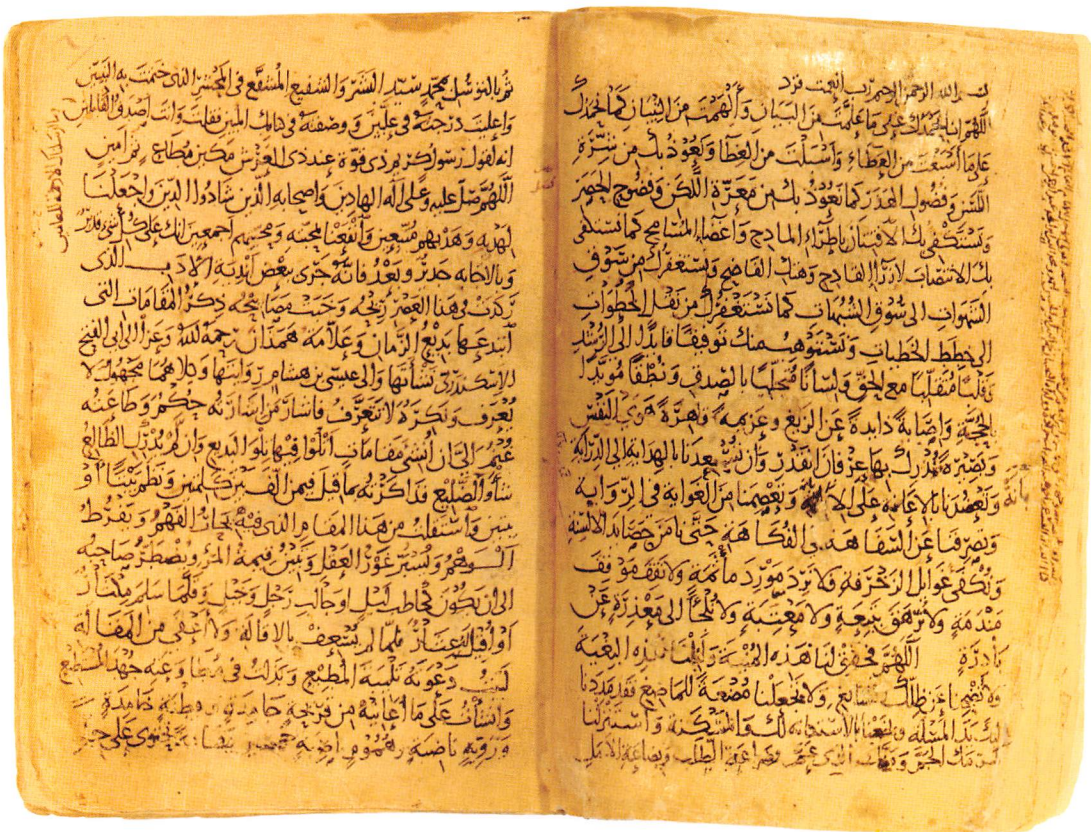 بسم الله الرحمن الرحيم رب أنعمت فزد
اللهم انا نحمدك على ما علمت من البيان وألهمت من التبيان كما نحمدك
على ما أسبغت من العطاء وأسبلت من الغطا ونعوذ بك من شرة
اللسن وفضول الهذر كما نعوذ بك من معرة اللكن وفضوح الحصر
ونستكفي بك الافتتان باطراء المادح وإغضاء المسامح كما نستكفي
بك الانتصاب لازراء القادح وهتك الفاضح ونستغفرك من سوق
الشهوات الى سوق الشبهات كما نستغفرك من نقل الخطوات
الى خطط الخطيات ونستوهب منك توفيقا قائدا الى الرشد
وقلبا متقلبا مع الحق ولسانا متحليا بالصدق ونطقا مويدا
بالحجة واصابة ذايدة عن الزيغ وعزيمة قاهرة هوى النفس
وبصيرة ندرك بها عرفان القدر وان تسعدنا بالهداية الى الدراية
وتعضدنا بالاعانة على الابانة وتعصمنا من الغواية في الرواية
وتصرفنا عن السفاهة في الفكاهة حتى نامن حصائد الالسنة
ونكفى غوايل الزخرفة فلا نرد مورد مأثمة ولا نقف موقف
مندمة ولا نرهق بتبعة ولا معتبة ولا نلجأ الى معذرة عن
بادرة اللهم فحقق لنا هذه المنية وأنلنا هذه البغية
ولا تضحنا عن ظلك السابغ ولا تجعلنا مضغة للماضغ فقد مددنا
اليك يد المسئلة وبخعنا بالاستكانة لك والمسكنة واستنزلنا
كرمك الجم وفضلك الذي عم بضراعة الطلب وبضاعة الامل
ثم بالتوسل بمحمد سيد البشر والشفيع المشفع في المحشر الذي ختمت به النبيين
واعليت درجته في عليين ووصفته في كتابك المبين فقلت وانت اصدق القائلين
انه لقول رسول كريم ذي قوة عند ذي العرش مكين مطاع ثم امين
اللهم صل عليه وعلى آله الهادين واصحابه الذين شادوا الدين واجعلنا
لهديه وهديهم متبعين وانفعنا بمحبته ومحبتهم اجمعين انك على كل شي قدير
وبالاجابة جدير وبعد فانه جرى ببعض اندية الادب الذي
ركدت في هذا العصر ريحه وخبت مصابيحه ذكر المقامات التي
ابتدعها بديع الزمان وعلامة همذان رحمه الله وعزا الى ابي الفتح
الاسكندري نشأتها والى عيسى بن هشام روايتها وكلاهما مجهول لا
يعرف ونكرة لا تتعرف فاشار من اشارته حكم وطاعته
غنم الى ان انشئ مقامات اتلو فيها تلو البديع وان لم يدرك الظالع
شأو الضليع فذاكرته بما قيل فيمن الف بين كلمتين ونظم بيتا او
بيتين واستقلت من هذا المقام الذي فيه يحار الفهم ويفرط
الوهم ويسبر غور العقل وتبين قيمة المرء ويضطر صاحبه
الى ان يكون كحاطب ليل او جالب رجل وخيل وقلما سلم مكثار
او اقيل له عثار فلما لم يسعف بالاقالة ولا اعفى من المقالة
لبيت دعوته تلبية المطيع وبذلت في مطاوعته جهد المستطيع
وانشأت على ما اعانيه من قريحة جامدة وفطنة خامدة
وروية ناضبة وهموم ناصبة خمسين مقامة تحتوي على جد